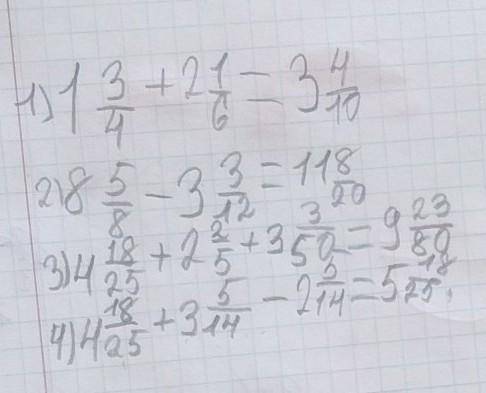 1) 1 3/4 + 2 1/6 = 3 4/10
2) 8 5/8 - 3 3/12 = 11 8/20
3) 4 18/25 + 2 2/5 + 3 3/50 = 9 23/80
4) 4 18/25 + 3 5/14 - 2 5/14 = 5 18/25.